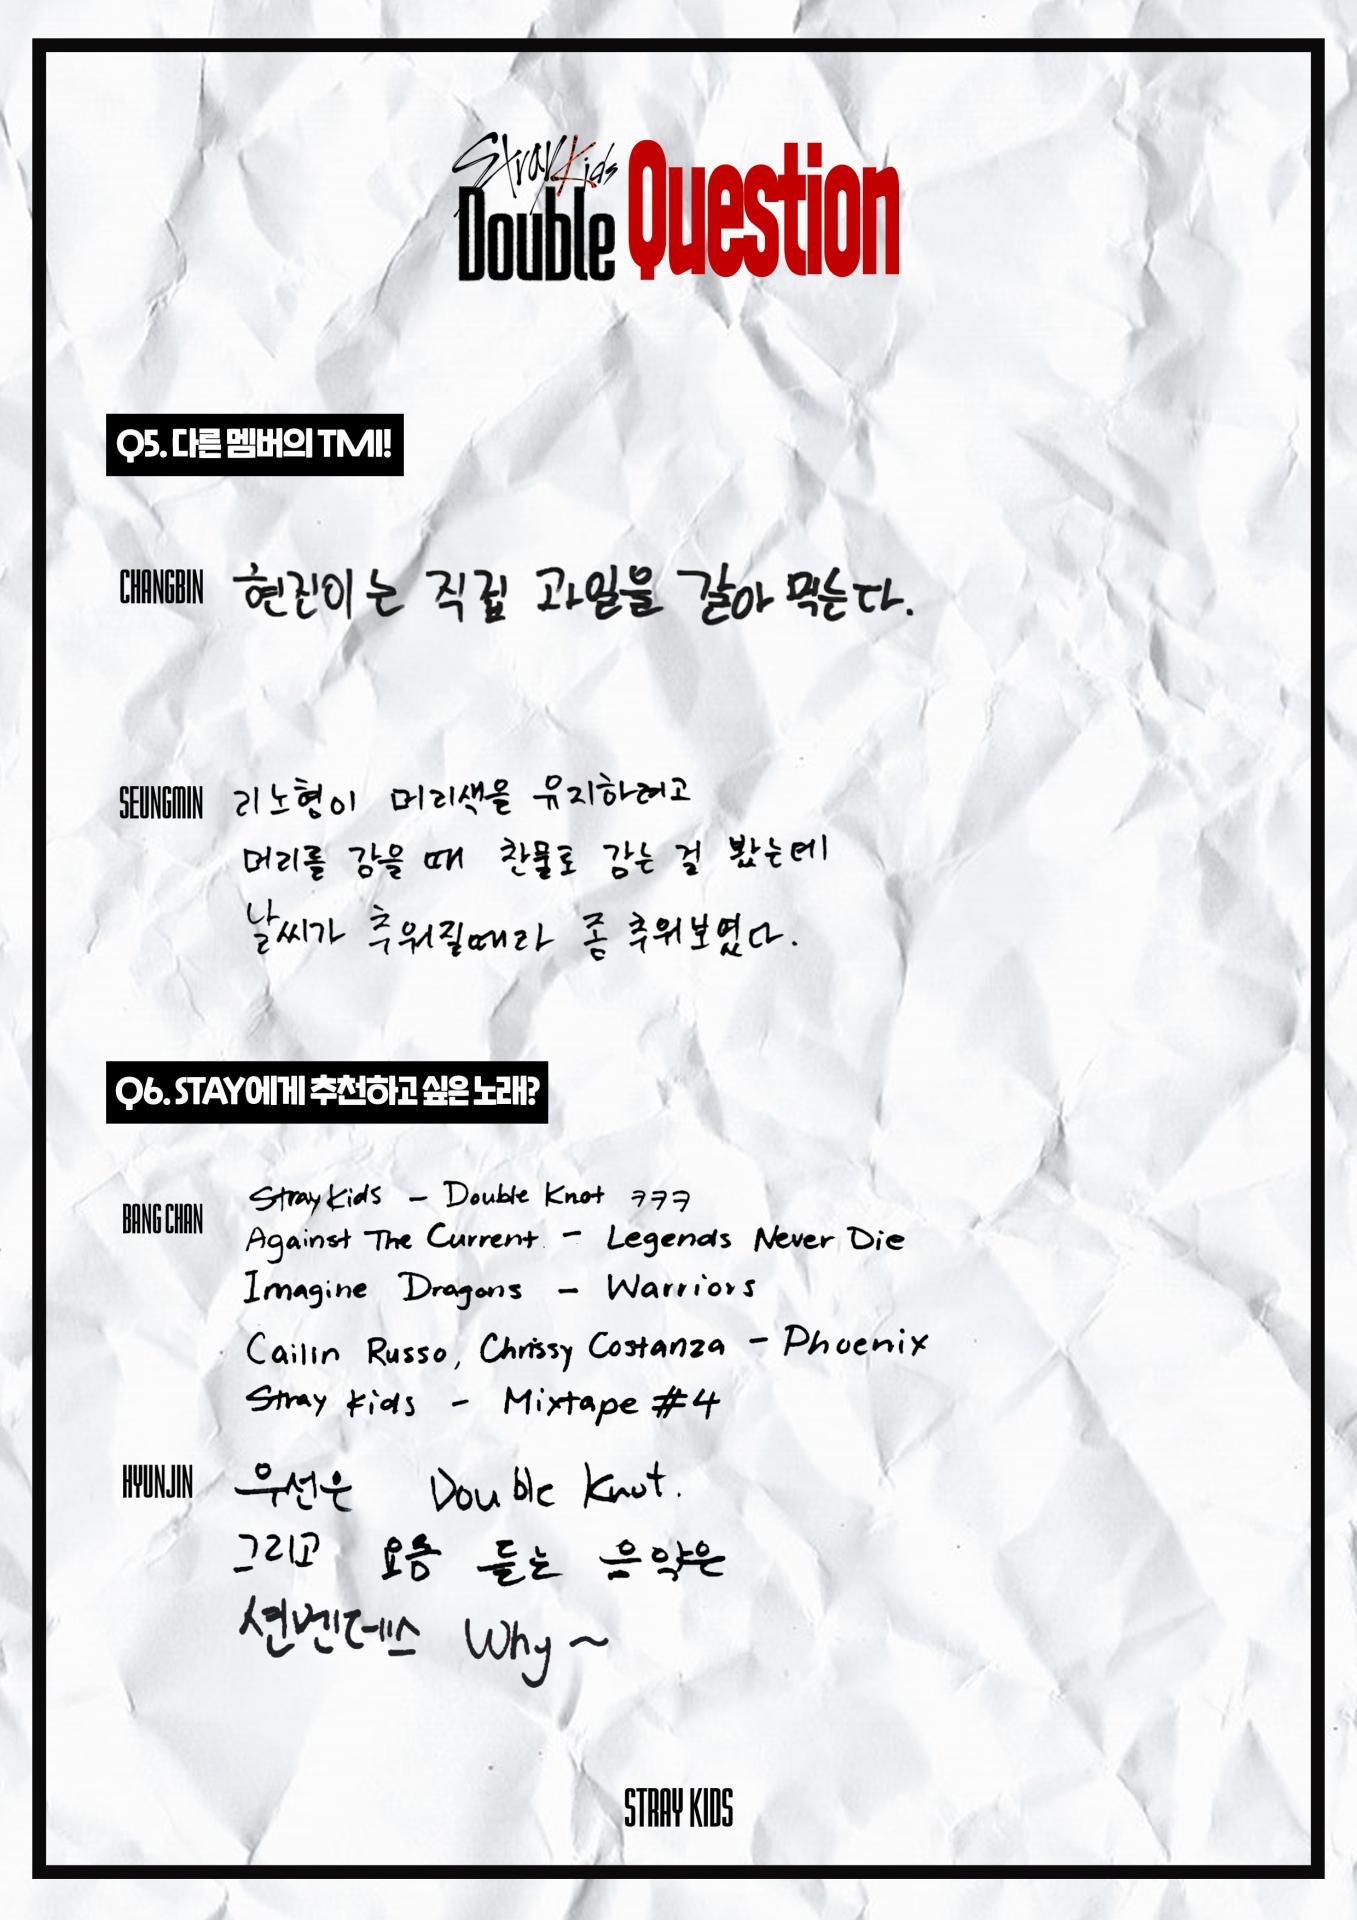 Stray Kids
Double Question
Q5. 다른 멤버의 TMI!
CHANGBIN 현진이는 직접 과일을 갈아 먹는다.
SEUNGMIN 리노형이 머리색을 유지하려고
머리를 감을 때 찬물로 감는 걸 봤는데
날씨가 추워질때라 좀 추워보였다.
Q6. STAY에게 추천하고 싶은 노래?
BANG CHAN Stray Kids - Double Knot ㅋㅋㅋ
Against The Current - Legends Never Die
Imagine Dragons - Warriors
Cailin Russo, Chrissy Costanza - Phoenix
Stray Kids - Mixtape #4
HYUNJIN 우선은 Double Knot.
그리고 요즘 듣는 음악은
션멘데스 Why ~
STRAY KIDS